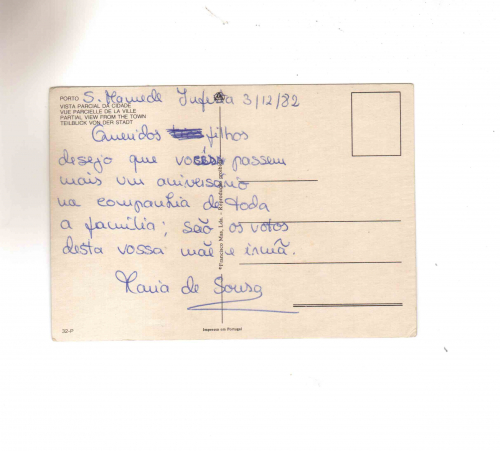 PORTO
VISTA PARCIAL DA CIDADE
VUE PARCIELLE DE LA VILLE
PARTIAL VIEW FROM THE TOWN
TEILBLICK VON DER STADT
S. Mamede Infesta 3/12/82
Queridos filhos
desejo que vocês passem
mais um aniversario
na companhia de toda
a família; são os votos
desta vossa mãe e irmã.
Maria de Sousa
32-P
Impresso em Portugal